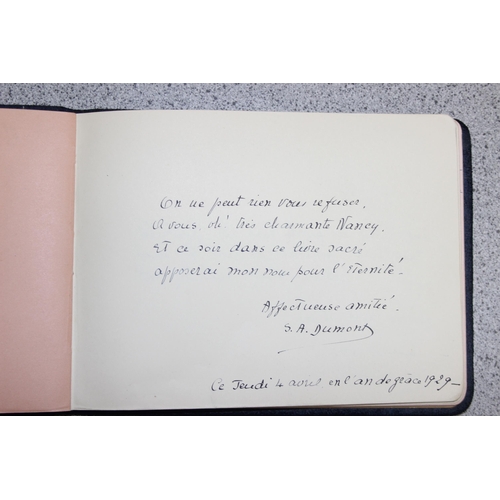 On ne peut rien vous refuser,
A vous, oh! très charmante Nancy,
Et ce soir dans ce livre sacré
apposerai mon nom pour l'Eternité.
Affectueuse amitié.
S. A. Dumont
Ce Jeudi 4 avril en l'an de grâce 1929_